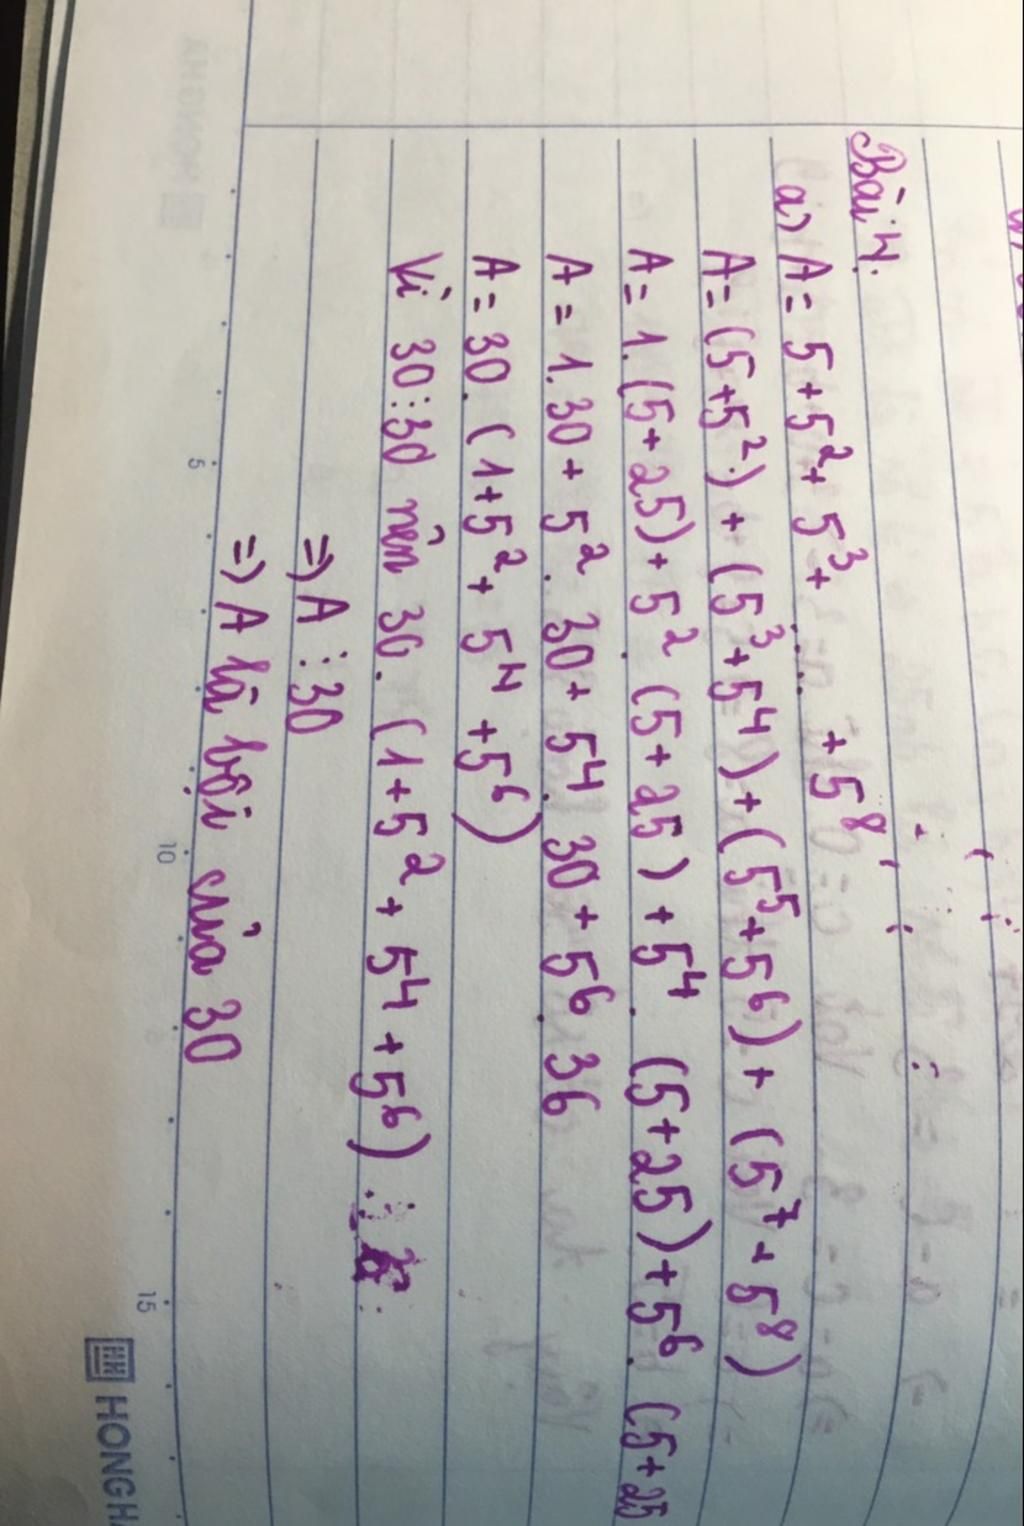 Bài 4.
a) A = 5 + 5² + 5³ + ... + 5⁸
A = (5 + 5²) + (5³ + 5⁴) + (5⁵ + 5⁶) + (5⁷ + 5⁸)
A = 1. (5 + 25) + 5². (5 + 25) + 5⁴. (5 + 25) + 5⁶. (5 + 25
A = 1.30 + 5². 30 + 5⁴. 30 + 5⁶. 36
A = 30. (1 + 5² + 5⁴ + 5⁶)
Vì 30 ⋮ 30 nên 30. (1 + 5² + 5⁴ + 5⁶) ⋮
⇒ A ⋮ 30
⇒ A là bội của 30
5
10
15
HONG H